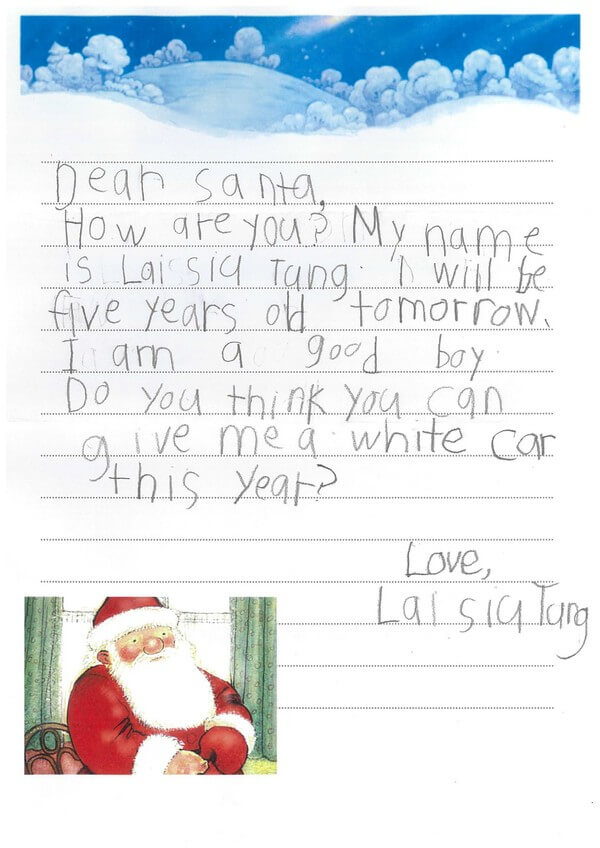 Dear Santa,
How are you? My name
is Lai Sia Tang. I will be
five years old tomorrow.
I am a good boy.
Do you think you can
give me a white car
this year?
Love,
Lai sia Tang